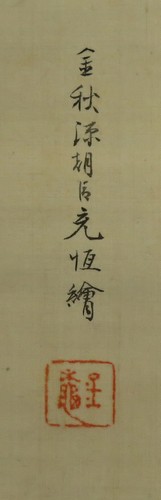 金秋源朝臣充恒繪